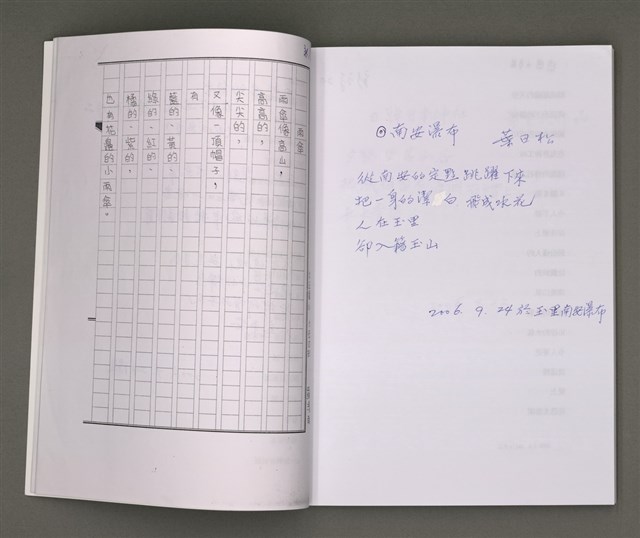 雨傘
雨傘像高山，
高高的，
尖尖的，
又像一頂帽子，
有
藍的、黃的、
綠的、紅的、
橘的、紫的，
色的花邊的小雨傘。
⊙南安瀑布 葉日松
從南安的定點跳躍下來
把一身的潔白 飛成水花
人在玉里
卻入籍玉山
2006. 9. 24 於玉里南安瀑布